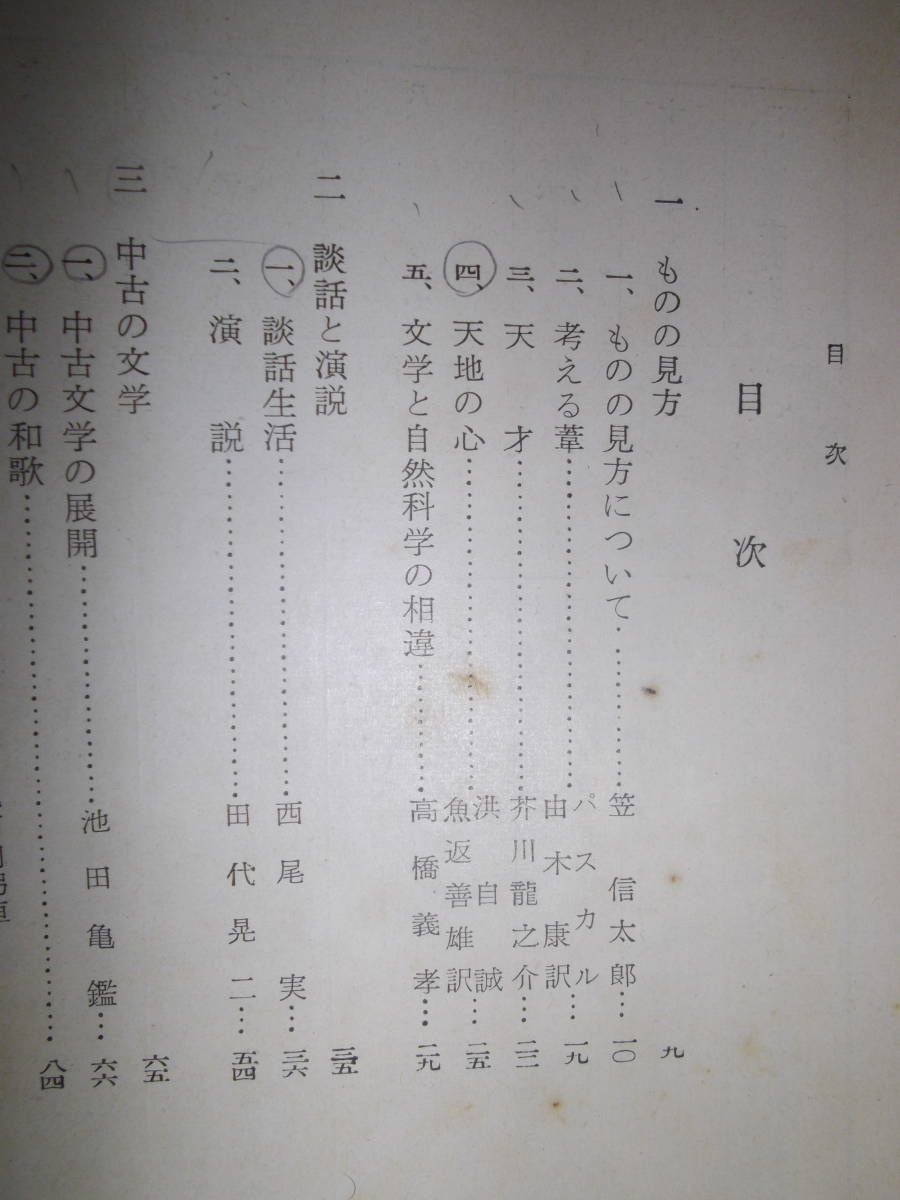 目次
目次
一 ものの見方 九
一、ものの見方について…………笠 信太郎…一〇
二、考える葦…………パスカル 由木 康訳…一九
三、天才…………芥川龍之介…二二
四、天地の心…………洪 自誠 魚返善雄訳…二五
五、文学と自然科学の相違…………高橋義孝…二九
二 談話と演説 三五
一、談話生活…………西尾 実…三六
二、演説…………田代晃二…五四
三 中古の文学 六五
一、中古文学の展開…………池田亀鑑…六六
二、中古の和歌…………八四